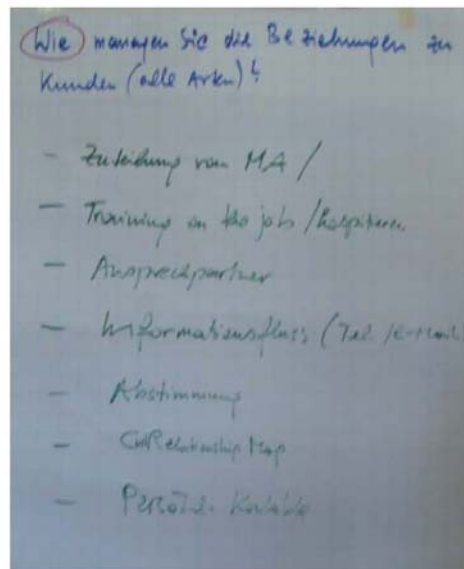 Wie managen Sie die Beziehungen zu
Kunden (alle Arten)?
- Zuteilung von MA /
- Training on the job / hospitieren
- Ansprechpartner
- Informationsfluss (Tel. / E-Mail)
- Abstimmung
- Relationship Map
- Persönl. Kontakte